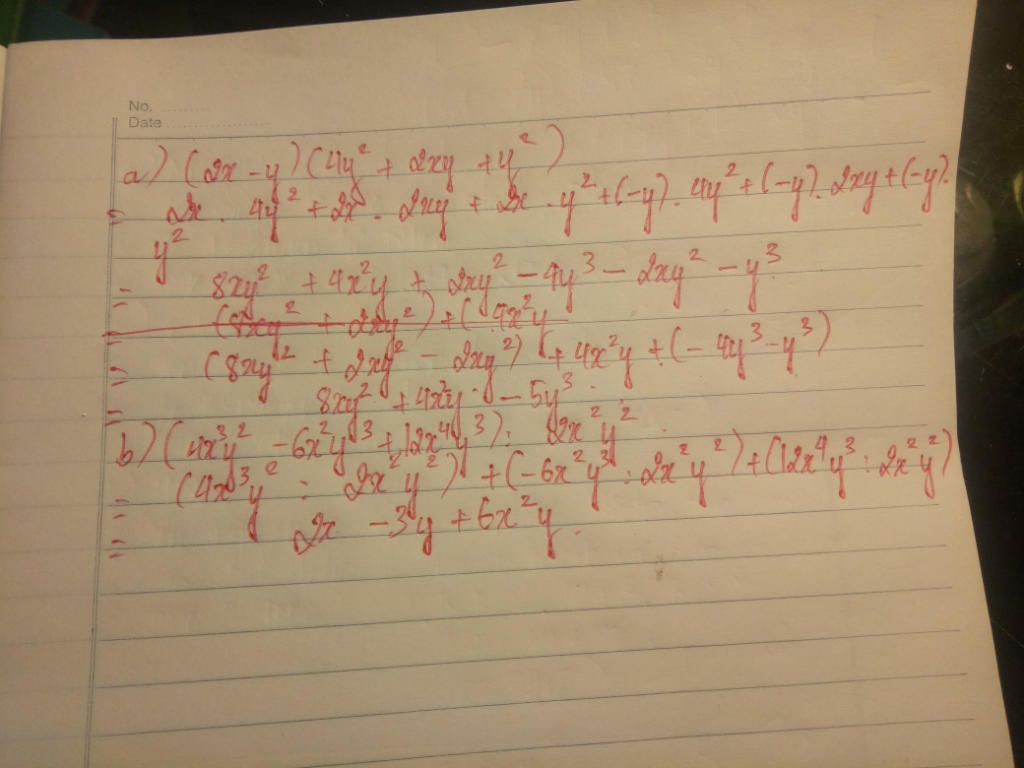 No. ..........
Date ......................
a) (2x - y)(4y² + 2xy + y²)
= 2x . 4y² + 2x . 2xy + 2x . y² + (-y) . 4y² + (-y) . 2xy + (-y).
y²
= 8xy² + 4x²y + 2xy² - 4y³ - 2xy² - y³
= (8xy² + 2xy²) + (4x²y
= (8xy² + 2xy² - 2xy²) + 4x²y + (- 4y³ - y³)
= 8xy² + 4x²y - 5y³.
b) (4x³y² - 6x²y³ + 12x⁴y³) : 2x²y².
= (4x³y² : 2x²y²) + (-6x²y³ : 2x²y²) + (12x⁴y³ : 2x²y²)
= 2x - 3y + 6x²y.